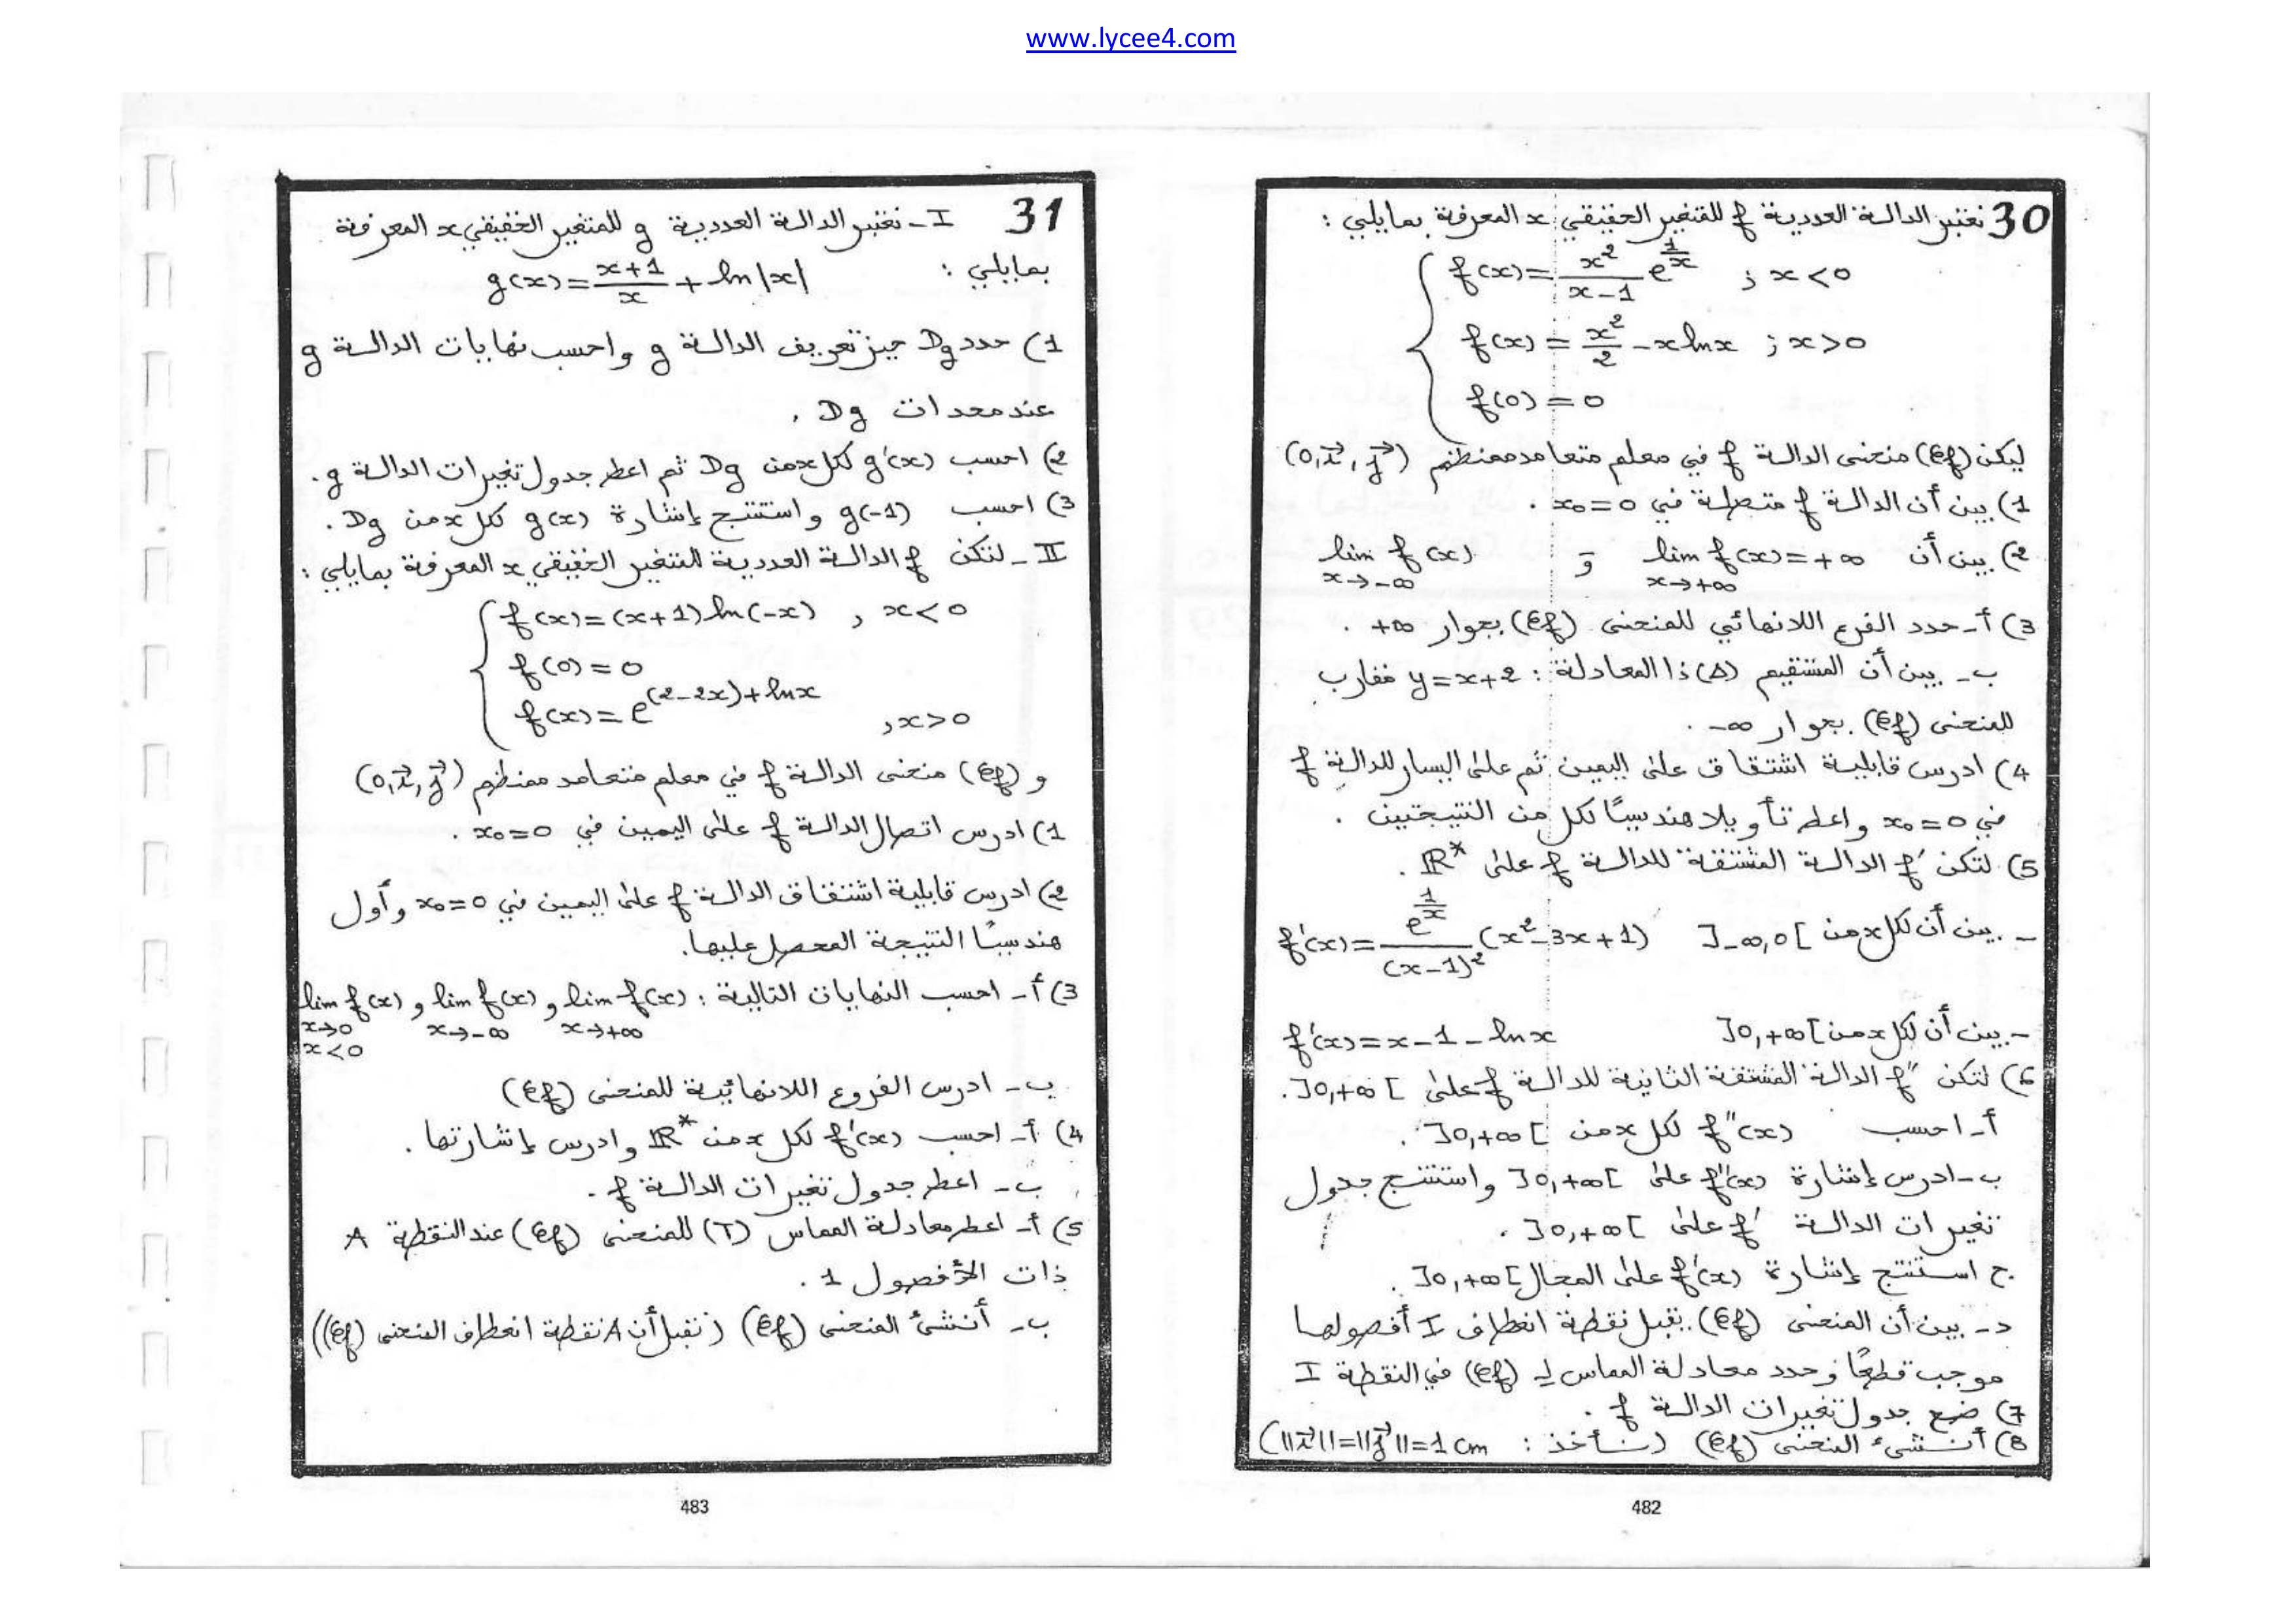 www.lycee4.com
30 نعتبر الدالة العددية f للمتغير الحقيقي x المعرفة بمايلي :
f(x) = \frac{x^2}{x-1} e^{\frac{1}{x}} ; x < 0
f(x) = \frac{x^2}{2} - x ln x ; x > 0
f(0) = 0
ليكن (𝒞f) منحنى الدالة f في معلم متعامد ممنظم (0, i⃗, j⃗)
1) بين أن الدالة f متصلة في x₀ = 0 .
2) بين أن lim f(x) = +∞ و lim f(x)
x→+∞ x→-∞
3) أ- حدد الفرع اللانهائي للمنحنى (𝒞f) بجوار +∞ .
ب- بين أن المستقيم (Δ) ذا المعادلة : y = x+2 مقارب
للمنحنى (𝒞f) بجوار -∞ .
4) ادرس قابلية اشتقاق على اليمين ثم على اليسار للدالة f
في x₀ = 0 واعط تأويلا هندسيًا لكل من النتيجتين .
5) لتكن f' الدالة المشتقة للدالة f على ℝ* .
- بين أن لكل x من ]-∞,0[ f'(x) = \frac{e^{\frac{1}{x}}}{(x-1)^2} (x²-3x+1)
- بين أن لكل x من ]0,+∞[ f'(x) = x - 1 - ln x
6) لتكن f" الدالة المشتقة الثانية للدالة f على ]0,+∞[ .
أ- احسب f"(x) لكل x من ]0,+∞[ .
ب- ادرس إشارة f"(x) على ]0,+∞[ واستنتج جدول
تغيرات الدالة f' على ]0,+∞[ .
ج استنتج إشارة f'(x) على المجال ]0,+∞[ .
د- بين أن المنحنى (𝒞f) يقبل نقطة انعطاف I أفصولها
موجب قطعًا وحدد معادلة المماس لـ (𝒞f) في النقطة I
7) ضع جدول تغيرات الدالة f .
8) أنشئ المنحنى (𝒞f) (نأخذ : ||i⃗|| = ||j⃗|| = 1 cm)
482
31 I - نعتبر الدالة العددية g للمتغير الحقيقي x المعرفة
بمايلي : g(x) = \frac{x+1}{x} + ln|x|
1) حدد Dg حيز تعريف الدالة g واحسب نهايات الدالة g
عند محدات Dg .
2) احسب g'(x) لكل x من Dg ثم اعط جدول تغيرات الدالة g .
3) احسب g(-1) واستنتج إشارة g(x) لكل x من Dg .
II - لتكن f الدالة العددية للمتغير الحقيقي x المعرفة بمايلي :
f(x) = (x+1) ln(-x) , x < 0
f(0) = 0
f(x) = e^{(2-2x)+ln x} , x > 0
و (𝒞f) منحنى الدالة f في معلم متعامد ممنظم (0, i⃗, j⃗)
1) ادرس اتصال الدالة f على اليمين في x₀ = 0 .
2) ادرس قابلية اشتقاق الدالة f على اليمين في x₀ = 0 وأول
هندسيًا النتيجة المحصل عليها.
3) أ- احسب النهايات التالية : lim f(x) و lim f(x) و lim f(x)
x→+∞ x→-∞ x→0
x<0
ب- ادرس الفروع اللانهائية للمنحنى (𝒞f)
4) أ- احسب f'(x) لكل x من ℝ* وادرس إشارتها .
ب- اعط جدول تغيرات الدالة f .
5) أ- اعط معادلة المماس (T) للمنحنى (𝒞f) عند النقطة A
ذات الأفصول 1 .
ب- أنشئ المنحنى (𝒞f) (نقبل أن A نقطة انعطاف المنحنى (𝒞f))
483